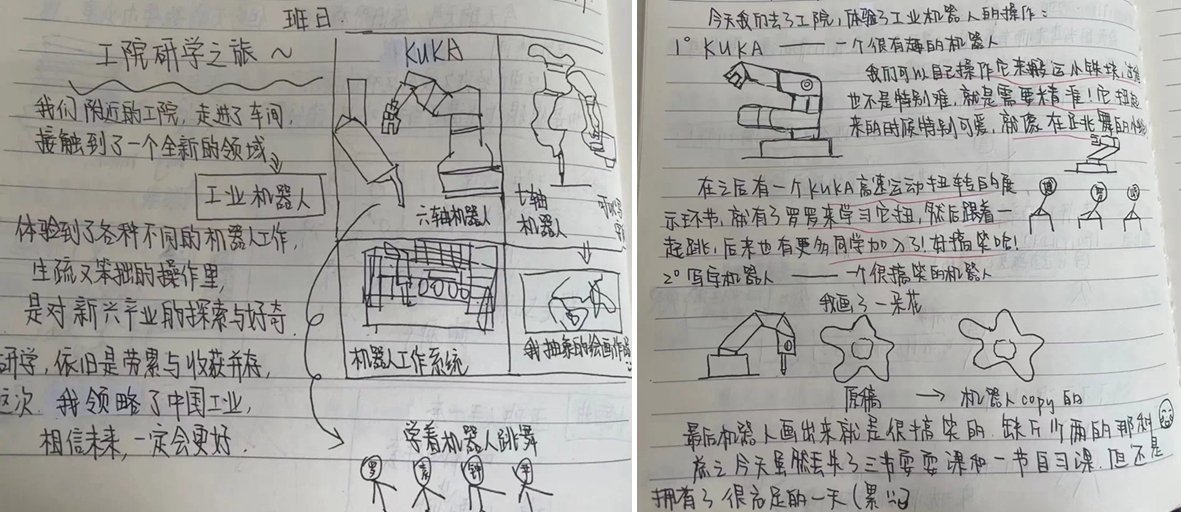 班日.
工院研学之旅～
我们附近的工院，走进了车间，
接触到了一个全新的领域
工业机器人
体验到了各种不同的机器人工作，
生疏又笨拙的操作里，
是对新兴产业的探索与好奇.
研学，依旧是劳累与收获并存，
这次.我领略了中国工业，
相信未来，一定会更好.
KUKA
六轴机器人
七轴
机器人
机器人工作系统
我抽象的绘画作品
学着机器人跳舞
罗
钟
今天我们去了工院，体验了工业机器人的操作：
1° KUKA —— 一个很有趣的机器人
我们可以自己操作它来搬运小铁球，
也不是特别难，就是需要精准！它扭起
来的时候特别可爱，就像在跳舞的
在之后有一个KUKA高速运动扭转的展
示环节，就有了罗罗来学习它扭，然后跟着一
起跳，后来也有更多同学加入了！好搞笑哈！
2° 写字机器人 —— 一个很搞笑的机器人
我画了一朵花
原稿 → 机器人copy的
最后机器人画出来就是很搞笑的.缺斤少两的那种
总之今天虽然丢失了三节耍耍课和一节自习课.但还是
拥有了很充足的一天（累